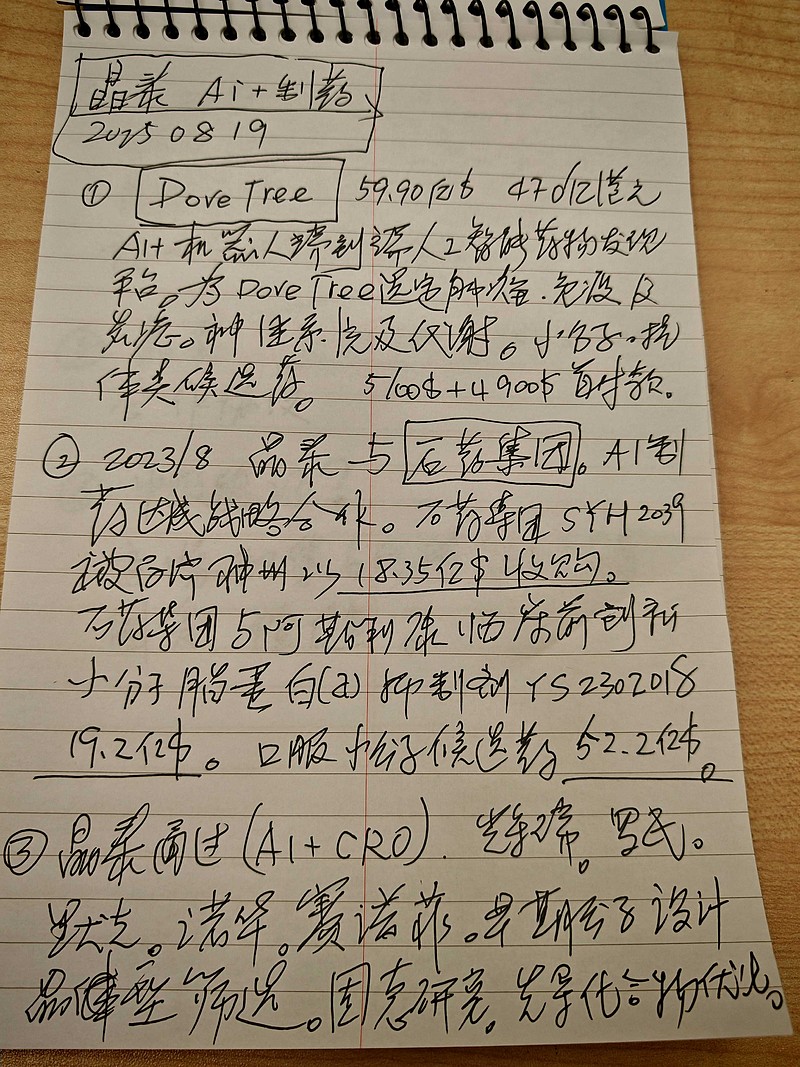 晶泰 Ai+制药
2025 08 19
① Dove Tree 59.90亿$ 470亿港元
AI+机器人 端到端人工智能药物发现
平台。为DoveTree选定肿瘤.免疫及
炎症。神经系统及代谢。小分子.抗
体类候选药。 5100$+4900$首付款。
② 2023/8 晶泰与石药集团。AI制
药达成战略合作。石药集团SYH2039
被百济神州以18.35亿$收购。
石药集团与阿斯利康临床前创新
小分子脂蛋白(a)抑制剂YS2302018
19.2亿$。口服小分子候选药52.2亿$。
③ 晶泰通过(AI+CRO).辉瑞。罗氏。
默克。诺华。赛诺菲。早期分子设计
晶体型筛选。固态研究。先导化合物优化。